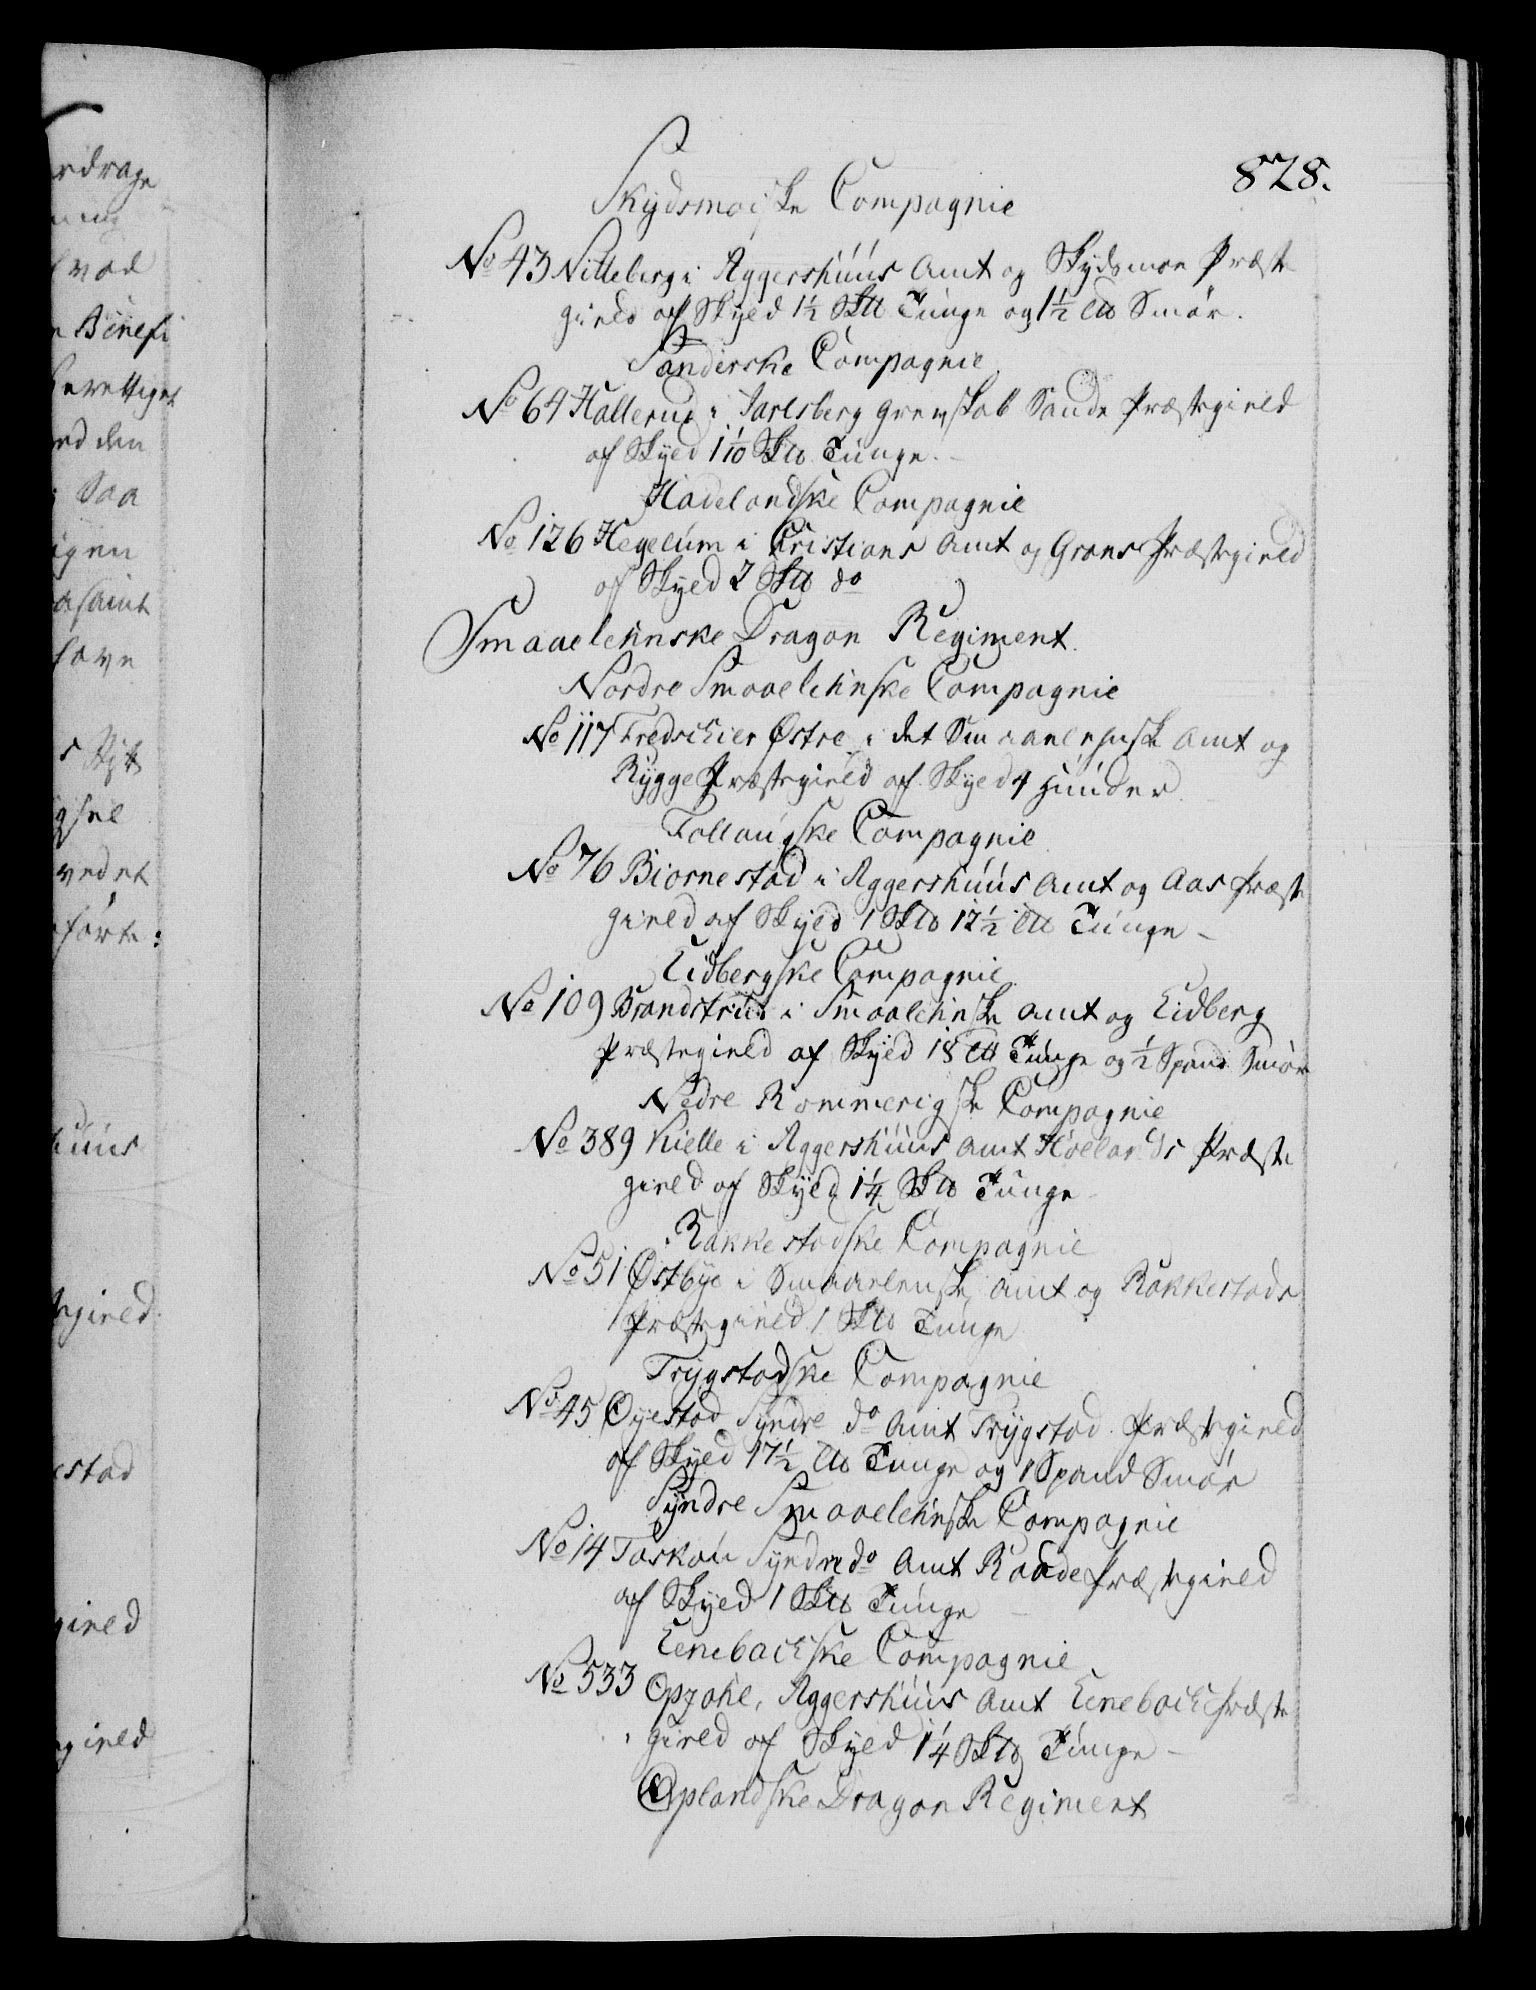 828.
Skydsmoiske Compagnie
No 43 Nitteberg i Aggershuus Amt og Skydsmoe Præste
gield af Skyld 1½ Sk℔ Tunge og 1½ ℔ Smør.
Sanderske Compagnie
No 64 Hallerud i Jarlsberg Grevskab Sande Præstegield
af Skyld 1 1/10 Sk℔ Tunge.
Hadelandske Compagnie
No 126 Hegelum i Cristians Amt og Grans Præstegield
af Skyld 2 Sk℔ do
Smaaelehnske Dragon Regiment.
Nordre Smaaelehnske Compagnie
No 117 Fredschier Østre i det Smaaelehnske Amt og
Rygge Præstegield af Skyld 4 Huuder
Follougske Compagnie
No 76 Biørnestad i Aggershuus Amt og Aas Præste
gield af Skyld 1 Sk℔ 12½ ℔ Tunge
Eidbergske Compagnie
No 109 Brandstrud i Smaalehnske Amt og Eidberg
Præstegield af Skyld 18 ℔ Tunge og ½ Spand Smør
Nedre Rommerigske Compagnie
No 389 Kielle i Aggershuus Amt Høelands Præste
gield af Skyld 1¼ Sk℔ Tunge
Rakkestadske Compagnie
No 51 Østbye i Smaalenske Amt og Rakkestads
Præstegield 1 Sk℔ Tunge
Trygstadske Compagnie
No 45 Øyestad Syndre do Amt Trygstad Præstegield
af Skyld 17½ ℔ Tunge og 1 Spand Smør
Syndre Smaaelehnske Compagnie
No 14 Taskou Syndre do Amt Raade Præstegield
af Skyld 1 Sk℔ Tunge
Eenebachske Compagnie
No 533 Aggershuus Amt Eenebach Præste
gield af Skyld 1¼ Sk℔ Tunge
Oplandske Dragon Regiment